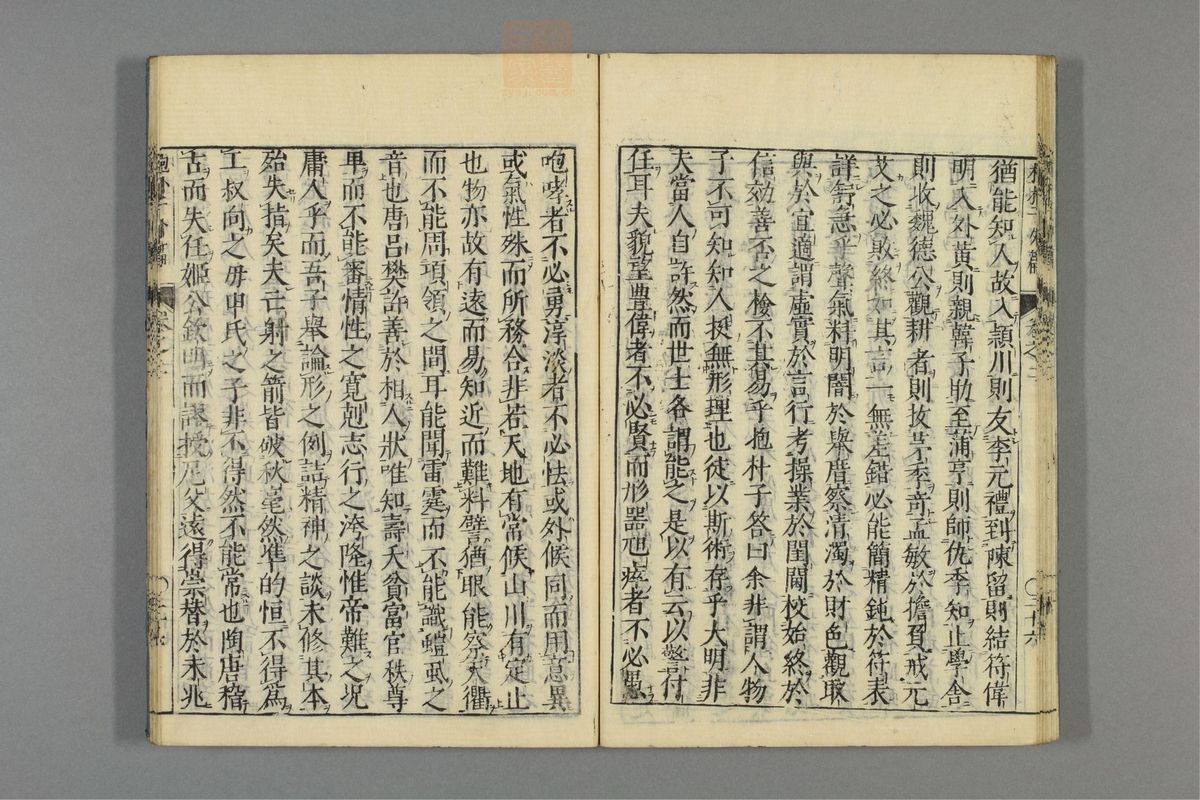 猶能知人故入潁川則友李元禮到陳留則結符偉
明入外黃則親韓子助至蒲亭則師仇季知止學舍
則收魏德公觀耕者則拔茅季偉孟敏於擔負戒元
艾之必敗終如其言一無差錯必能簡精鈍於符表
詳舒急乎聲氣料明闇於舉厝察清濁於財色觀取
與於宜適謂虛實於言行考操業於閨閫校始終於
信効善否之檢不其易乎抱朴子答曰余非謂人物
子不可知知人挺無形理也徒以斯術存乎大明非
夫當人自許然而世士各謂能之是以有云以警付
任耳夫貌望豐偉者不必賢而形器尫瘁者不必愚
咆哮者不必勇淳淡者不必怯或外候同而用意異
或氣性殊而所務合非若天地有常候山川有定止
也物亦故有遠而易知近而難料譬猶眼能察天衢
而不能周項領之間耳能聞雷霆而不能識螘虱之
音也唐呂樊許善於相人狀唯知壽夭貧富官秩尊
卑而不能審情性之寬剋志行之洿隆惟帝難之况
庸人乎而吾子舉論形之例詰精神之談未修其本
殆失指矣夫亡射之箭皆破秋毫然準的恒不得為
工叔向之母申氏之子非不得然不能常也陶唐稽
古而失任姬公欽明而謬授尼父遠得崇替於未兆
抱朴子外篇
卷之二
二十六